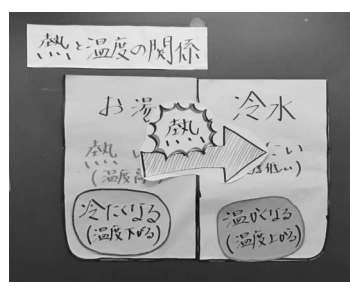 熱と温度の関係
お湯
冷水
熱
熱い
(温度高
たい
低い)
冷たくなる
(温度下がる)
温かくなる
(温度上がる)